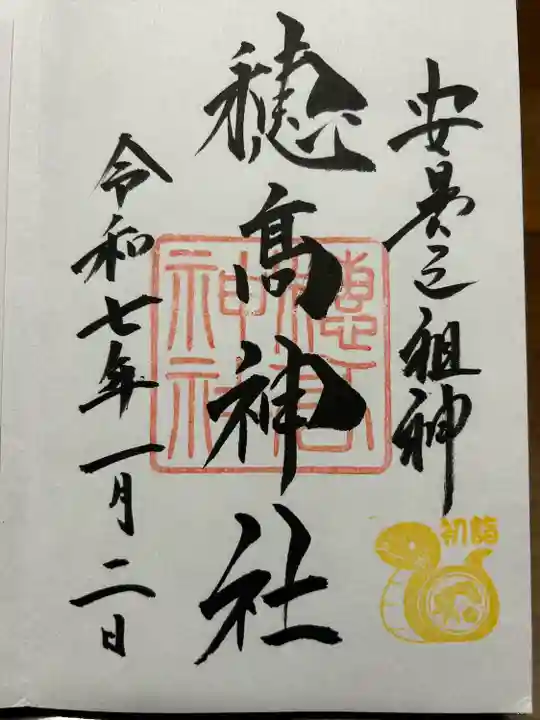 安曇之祖神
穂髙神社
令和七年一月二日
穂高神社
初詣